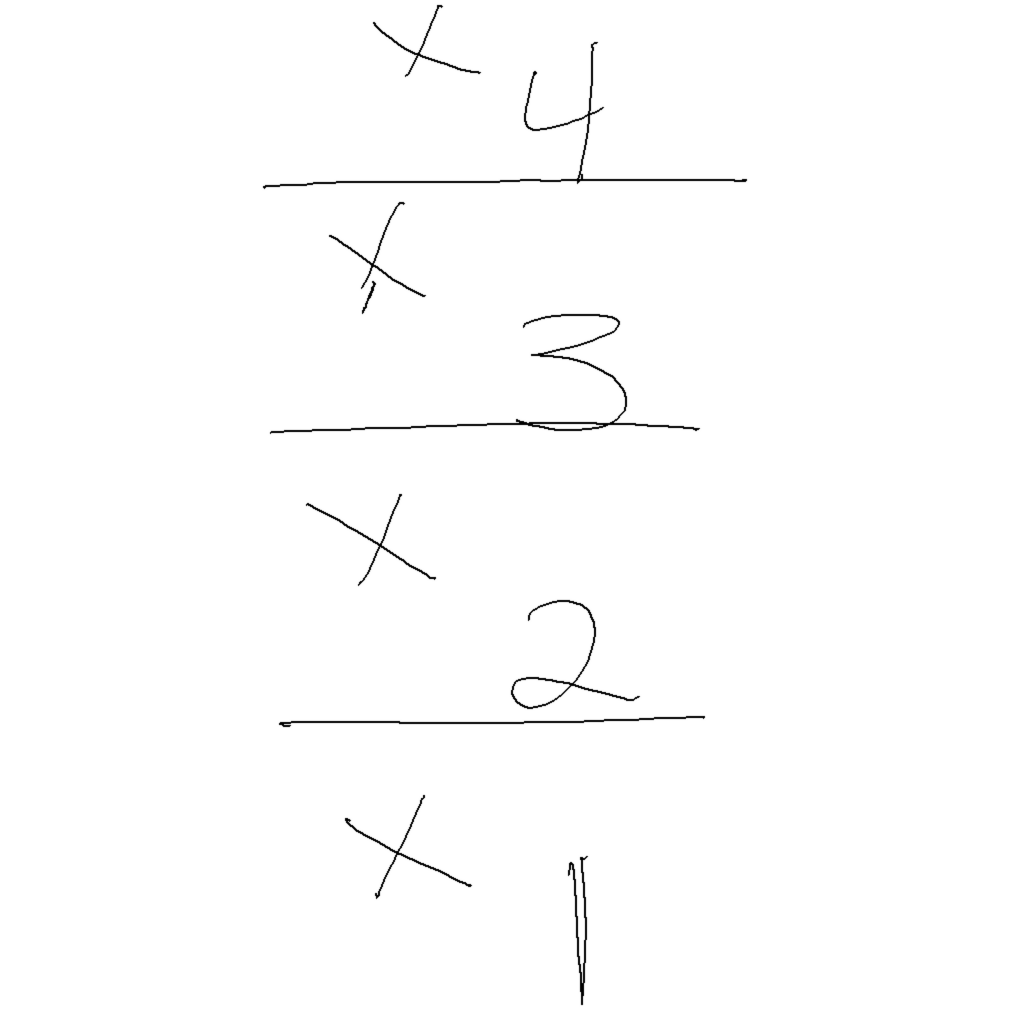 × 4
× 3
× 2
× 1